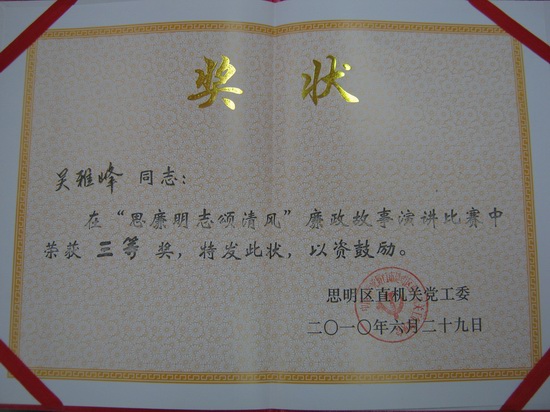 奖 状
吴雅峰 同志：
在“思廉明志颂清风”廉政故事演讲比赛中
荣获 三等 奖，特发此状，以资鼓励。
思明区直机关党工委
二〇一〇年六月二十九日